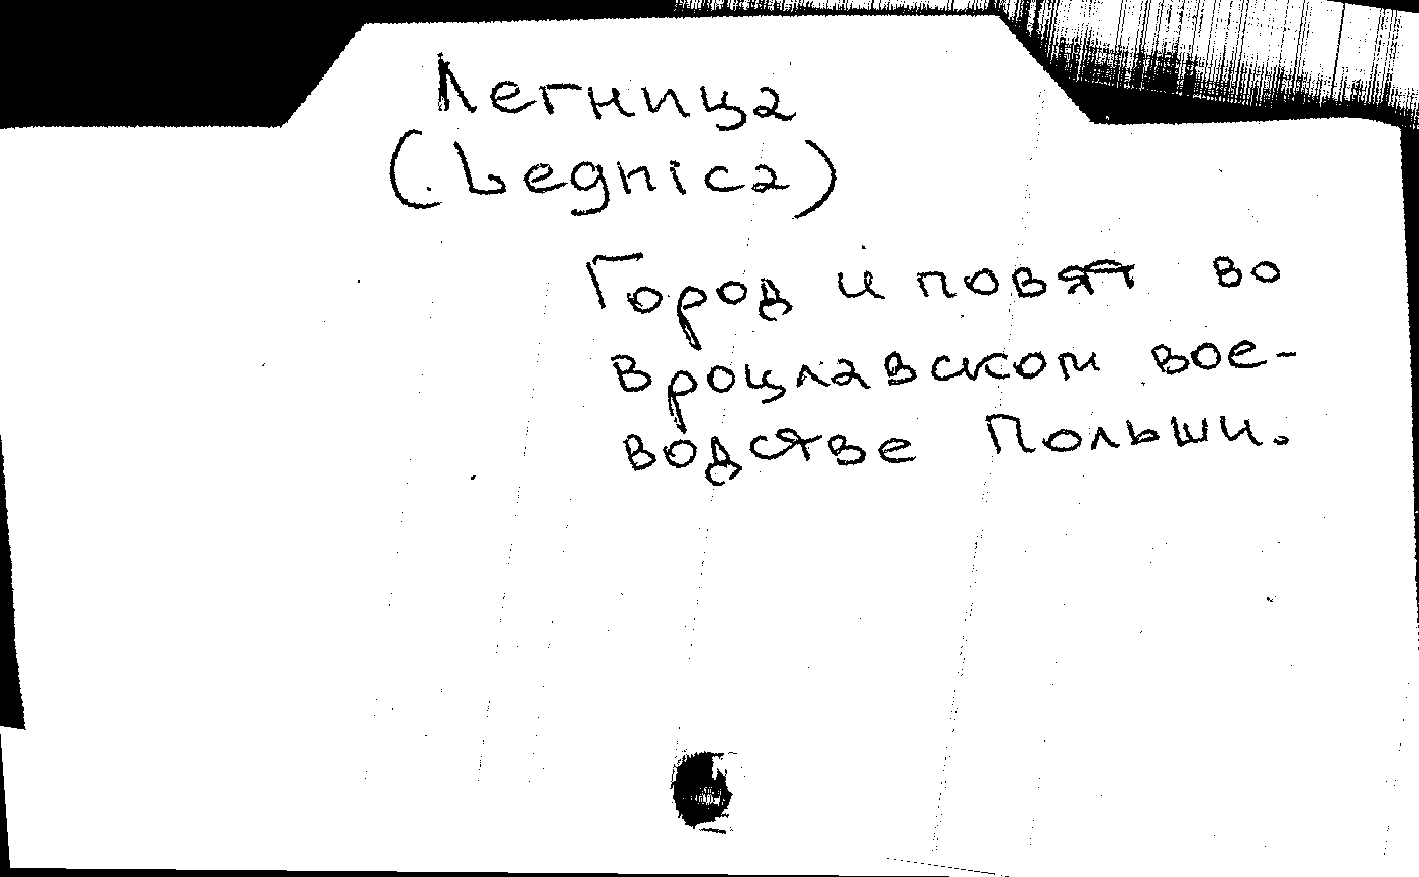 Легница
(Legnica)
Город и повят во
Вроцлавском вое-
водстве Польши.